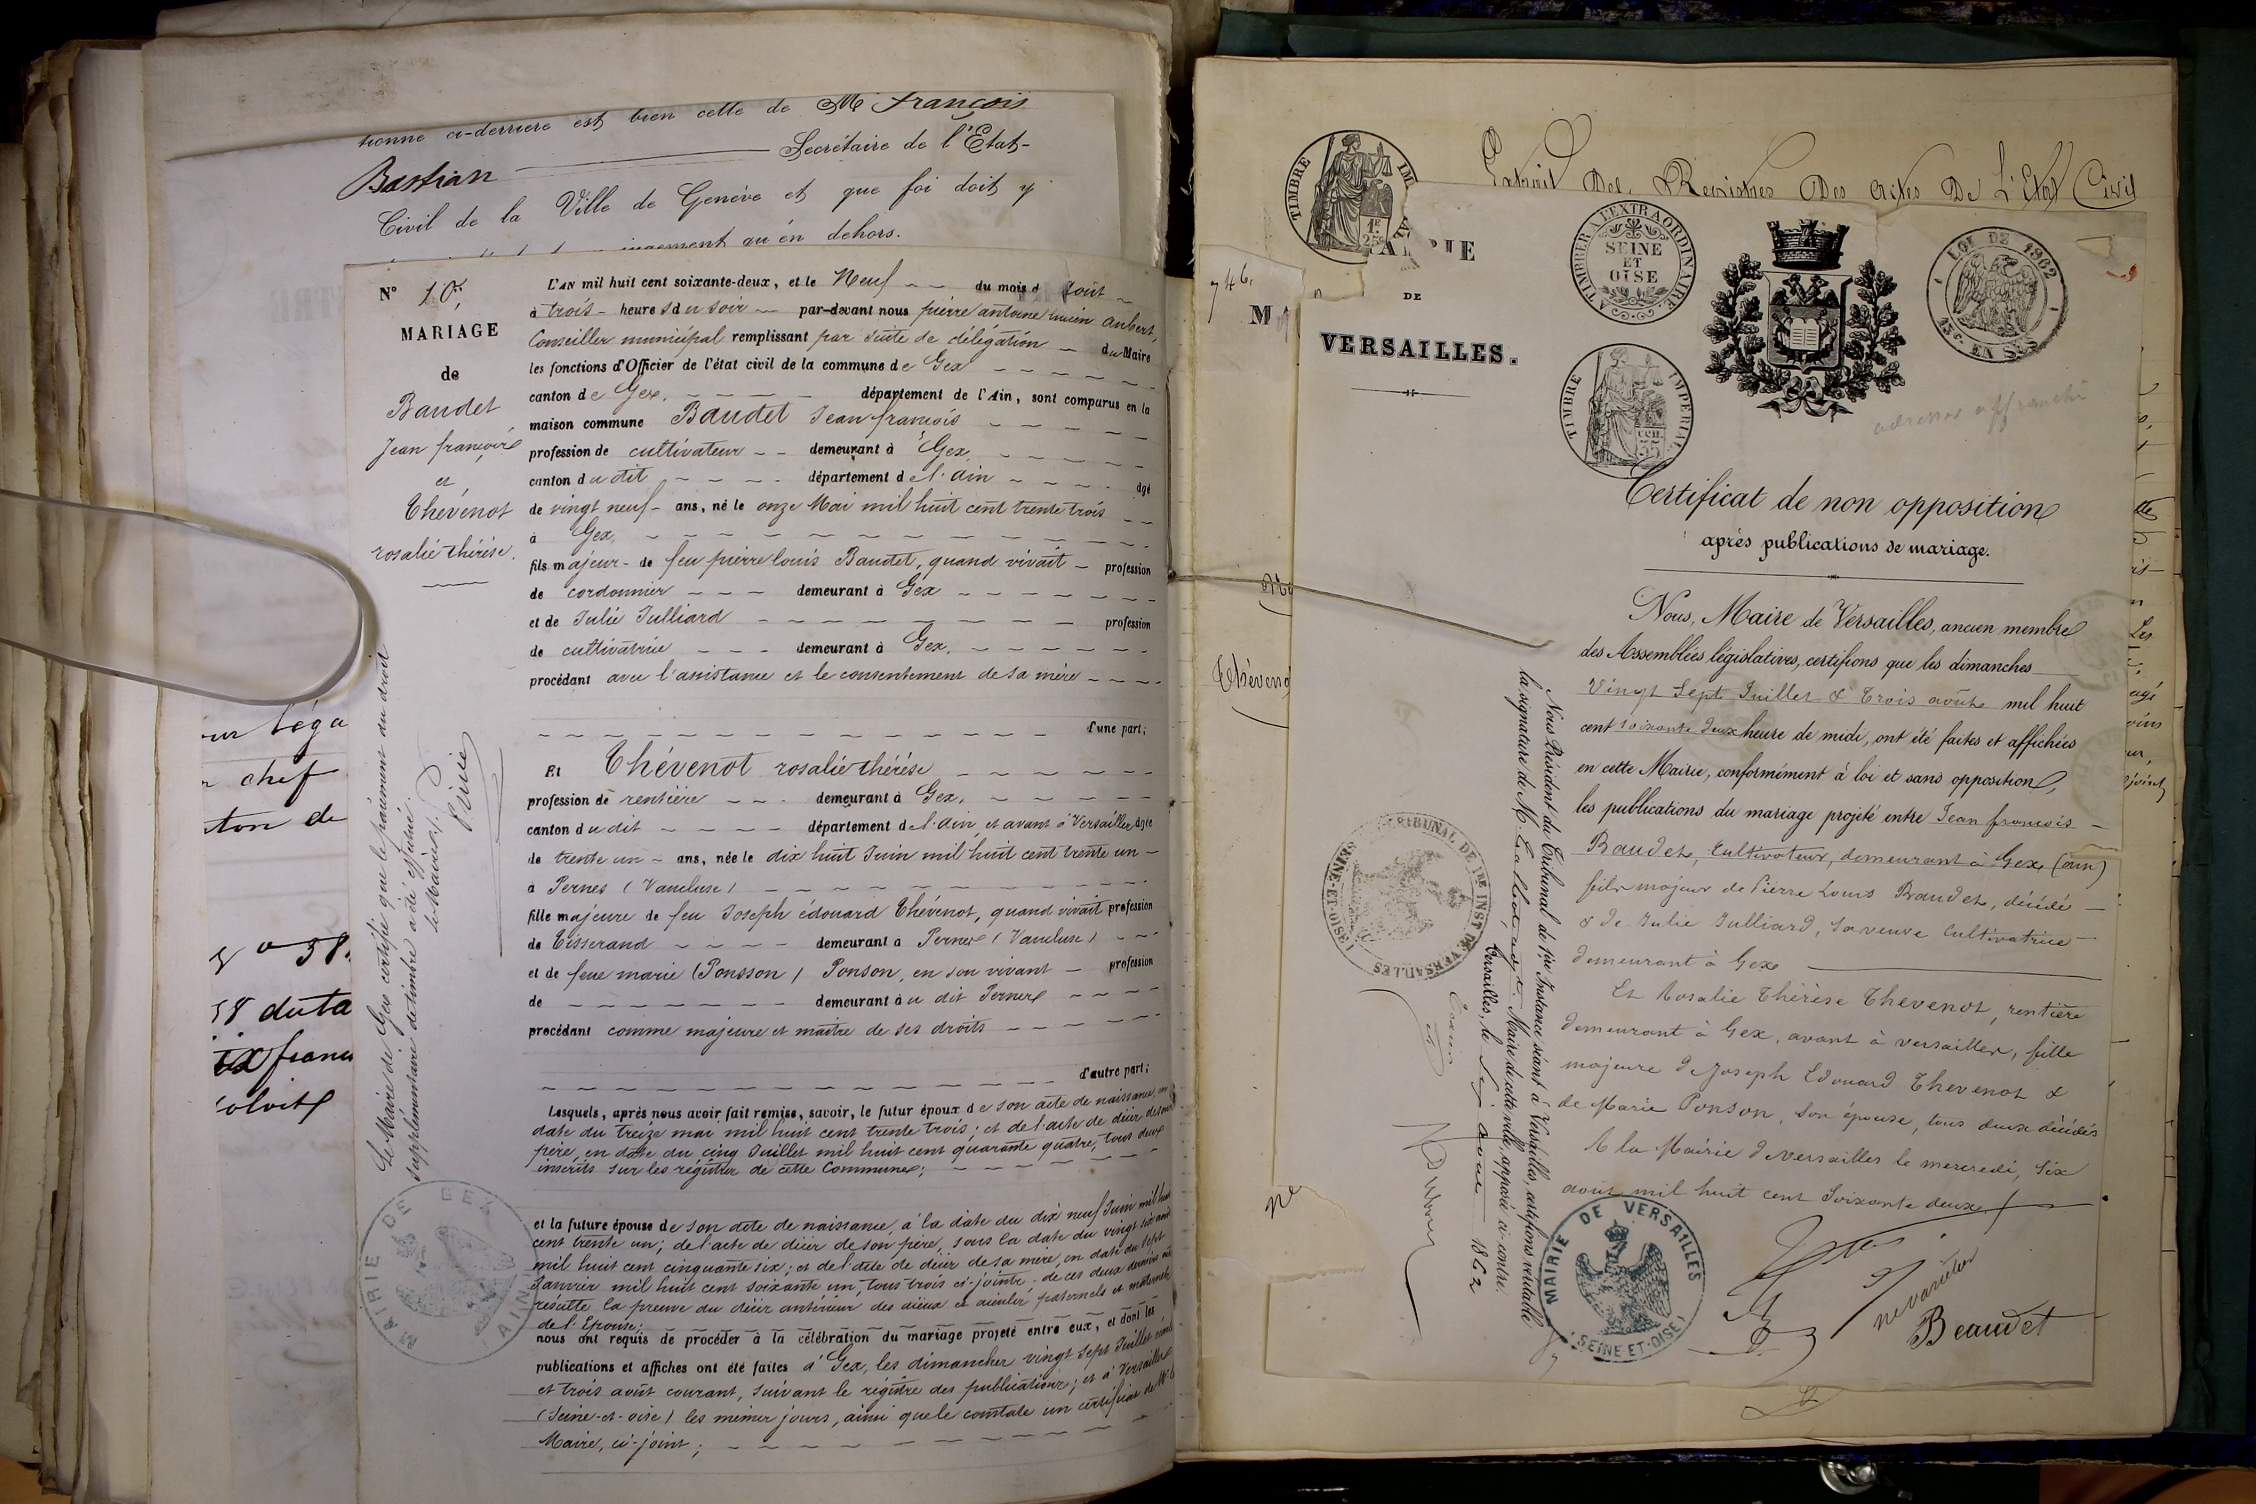 tionne ci-derrière est bien celle de Mr François
Bastian Secrétaire de l'Etat-
Civil de la Ville de Genève et que foi doit y
jugement qu'en dehors.
N° 10,
MARIAGE
de
Baudet
Jean françois
et
Thévenot
rosalie thérèse.
L'AN mil huit cent soixante-deux, et le Neuf du mois d'août
à trois heures du soir par-devant nous pierre antoine lucien Aubert,
Conseiller municipal remplissant par suite de délégation du Maire
les fonctions d'Officier de l'état civil de la commune de Gex
canton de Gex, département de l'Ain, sont comparus en la
maison commune Baudet Jean-françois
profession de cultivateur demeurant à Gex,
canton du dit département de l'Ain âgé
de vingt neuf ans, né le onze Mai mil huit cent trente trois
à Gex,
fils majeur de feu pierre louis Baudet, quand vivait profession
de cordonnier demeurant à Gex
et de Julie Julliard profession
de cultivatrice demeurant à Gex,
procédant avec l'assistance et le consentement de sa mère
d'une part;
Et Thévenot rosalie thérèse
profession de rentière demeurant à Gex,
canton du dit département de l'Ain, et avant à Versailles âgée
de trente un ans, née le dix huit Juin mil huit cent trente un
à Pernes (Vaucluse)
fille majeure de feu Joseph édouard Thévenot, quand vivait profession
de Tisserand demeurant à Pernes (Vaucluse)
et de feue marie (Ponsson) Ponson, en son vivant profession
de demeurant à u dit Pernes
procédant comme majeure et maître de ses droits
d'autre part;
Lesquels, après nous avoir fait remise, savoir, le futur époux de son acte de naissance, en
date du treize mai mil huit cent trente trois; et de l'acte de décès de son
père, en date du cinq Juillet mil huit cent quarante quatre, tous deux
inscrits sur les registres de cette Commune;
et la future épouse de son acte de naissance, à la date du dix neuf Juin mil huit
cent trente un; de l'acte de décès de son père, sous la date du vingt six
mil huit cent cinquante six; et de l'acte de décès de sa mère, en date du sept
Janvier mil huit cent soixante un, tous trois ci-joints; de ces deux derniers
résulte la preuve du décès antérieur des aïeux et aïeules paternels et maternels
de l'Epouse;
nous ont requis de procéder à la célébration du mariage projeté entre eux, et dont les
publications et affiches ont été faites à Gex, les dimanches vingt sept Juillet
et trois août courant, suivant le registre des publications; et à Versailles
(Seine-et-oise) les mêmes jours, ainsi que le constate un certificat de Mr le
Maire, ci-joint;
Le Maire de Gex certifie que le paiement du droit
supplémentaire de timbre a été effectué.
le Maire
MAIRIE DE GEX
AIN
ur Léga
chef
ton de
58.
58 duta
ix franc
Extrait Des Registres Des actes De L'Etat Civil
TIMBRE IMPÉRIAL
746,
M
Théveno
MAIRIE
DE
VERSAILLES.
A TIMBRER A L'EXTRAORDINAIRE
SEINE
ET
OISE
LOI DE 1862
EN SUS
TIMBRE IMPERIAL
adresser affranchi
Certificat de non opposition
après publications de mariage.
Nous, Maire de Versailles, ancien membre
des Assemblées législatives, certifions que les dimanches
Vingt Sept Juillet & Trois août mil huit
cent soixante deux heure de midi, ont été faites et affichées
en cette Mairie, conformément à loi et sans opposition,
les publications du mariage projeté entre Jean françois
Baudet, Cultivateur, demeurant à Gex (ain)
fils majeur de Pierre Louis Baudet, décédé
& de Julie Julliard, sa veuve Cultivatrice
demeurant à Gex
Et Rosalie Thérèse Thevenot, rentière
demeurant à Gex, avant à Versailles, fille
majeure de Joseph Edouard Thevenot &
de Marie Ponson, son épouse, tous deux décédés
A la Mairie de Versailles le mercredi, Six
août mil huit cent Soixante deux
MAIRIE DE VERSAILLES
(SEINE-ET-OISE)
ne varietur
Beaudet
Nous Président du Tribunal de 1ère Instance séant à Versailles, certifions véritable
la signature de M. Maire de cette ville, apposée ci-contre.
Versailles, le Six août 1862
TRIBUNAL DE 1RE INST. DE VERSAILLES
(SEINE-ET-OISE)